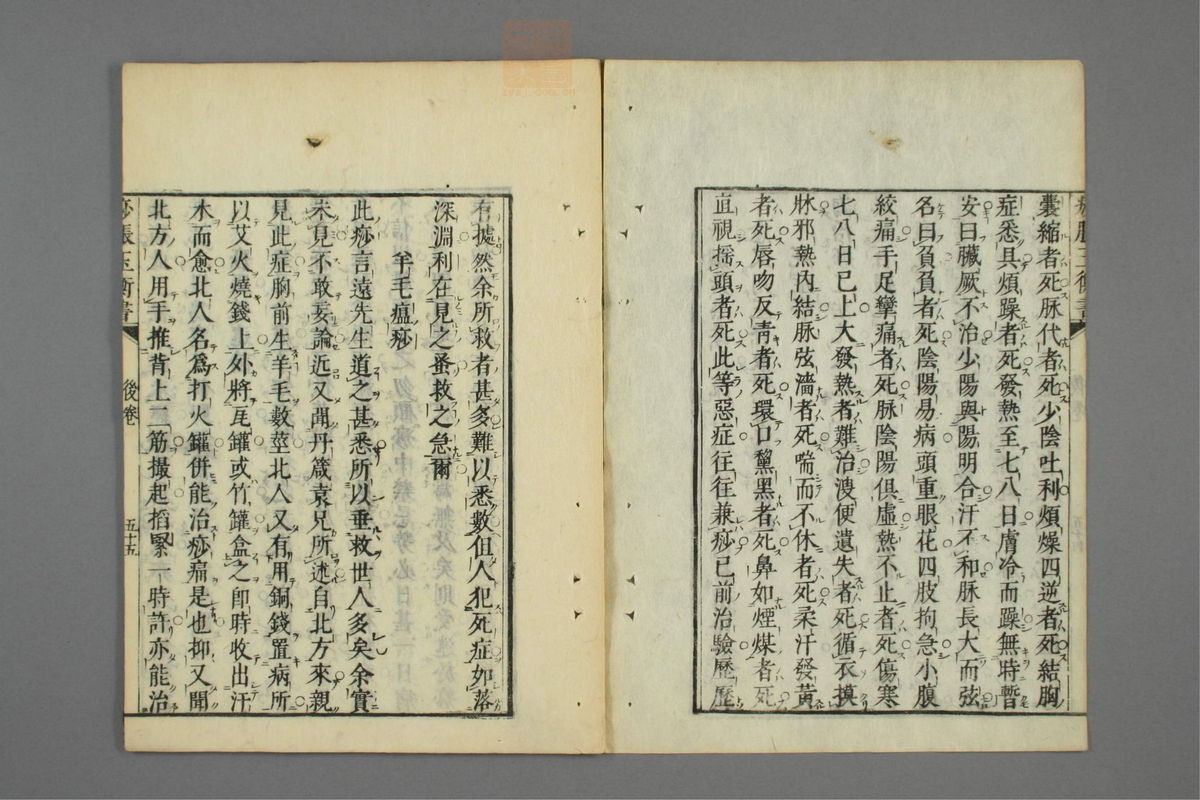 囊縮者死脉代者死少陰吐利煩燥四逆者死結胸
症悉具煩躁者死發熱至七八日膚冷而躁無時暫
安曰臟厥不治少陽與陽明合汗不和脉長大而弦
名曰負負者死陰陽易病頭重眼花四肢拘急小腹
絞痛手足攣痛者死脉陰陽俱虛熱不止者死傷寒
七八日已上大發熱者難治溲便遺失者死循衣摸
牀邪熱內結脉弦濇者死喘而不休者死柔汗發黃
者死唇吻反青者死環口黧黑者死鼻如煙煤者死
直視搖頭者死此等惡症往往兼痧已前治驗歷歷
有據然余所救者甚多難以悉數但人犯死症如落
深淵利在見之蚤救之急爾
羊毛瘟痧
此痧言遠先生道之甚悉所以垂救世人多矣余實
未見不敢妄論近又聞丹箴袁兄所述自北方來親
見此症胸前生羊毛數莖北人又有用銅錢置病所
以艾火燒錢上外將瓦罐或竹罐盒之卽時收出汗
水而愈北人名爲打火罐併能治痧痛是也抑又聞
北方人用手推背上二筋撮起搯緊一時許亦能治
痧脹玉衡書
後卷
五十五